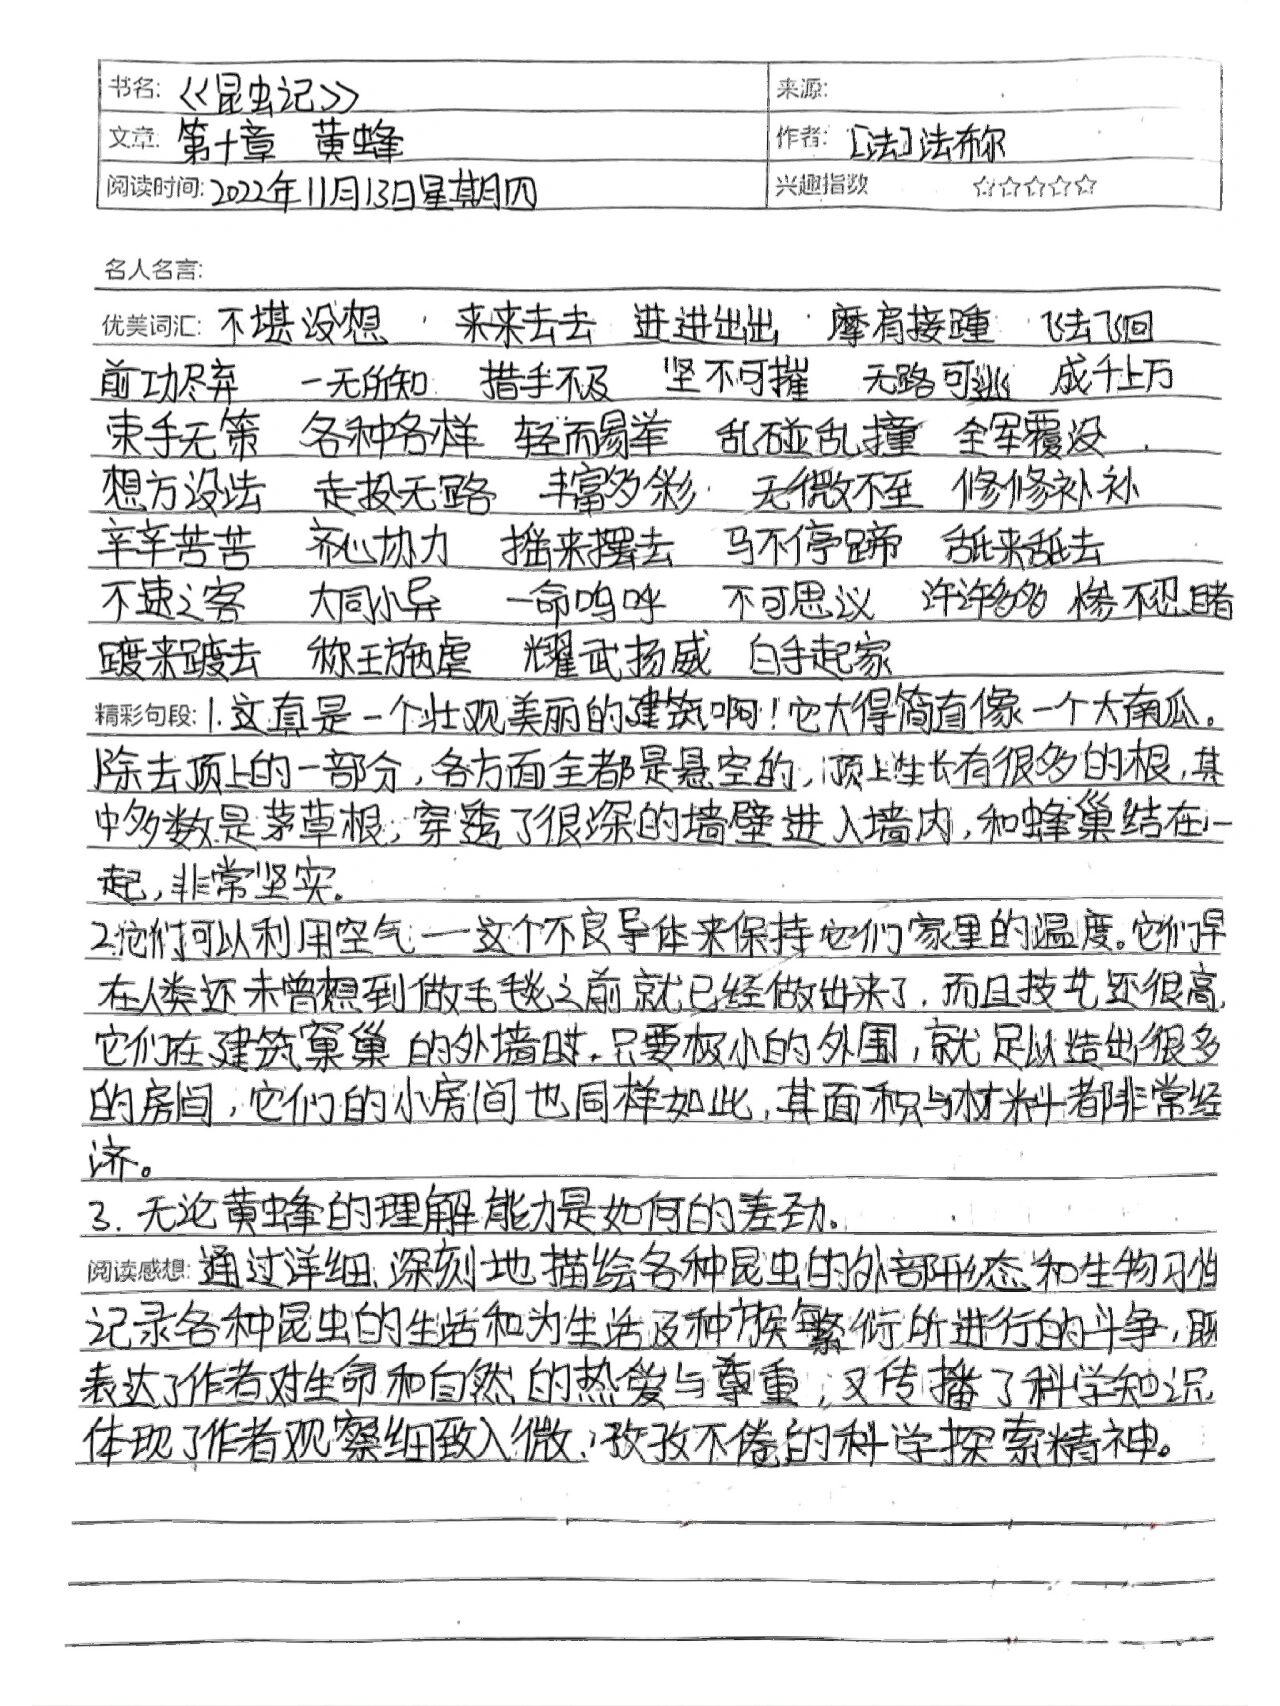 书名: 《昆虫记》 来源:
文章: 第十章 黄蜂 作者: [法]法布尔
阅读时间: 2022年11月13日星期四 兴趣指数 ☆☆☆☆☆
名人名言:
优美词汇: 不堪没想 来来去去 进进出出 摩肩接踵 飞去飞回
前功尽弃 一无所知 措手不及 坚不可摧 无路可逃 成千上万
束手无策 各种各样 轻而易举 乱碰乱撞 全军覆没
想方没法 走投无路 丰富多彩 无微不至 修修补补
辛辛苦苦 齐心协力 摇来摆去 马不停蹄 舐来舐去
不速之客 大同小异 一命呜呼 不可思议 许许多多 惨不忍睹
踱来踱去 称王施虐 耀武扬威 白手起家
精彩句段: 1.这真是一个壮观美丽的建筑啊!它大得简直像一个大南瓜。
除去顶上的一部分,各方面全都是悬空的,顶上生长有很多的根,其
中多数是茅草根,穿透了很深的墙壁进入墙内,和蜂巢结在一
起,非常坚实.
2.它们可以利用空气一这个不良导体来保持它们家里的温度。它们早
在人类还未曾想到做毛毯之前就已经做出来了,而且技艺还很高,
它们在建筑窠巢的外墙时.只要极小的外围,就足以造出很多
的房间,它们的小房间也同样如此,其面积与材料都非常经
济。
3.无论黄蜂的理解能力是如何的差劲.
阅读感想: 通过详细、深刻地描绘各种昆虫的外部形态和生物习性
记录各种昆虫的生活和为生活及种族繁衍所进行的斗争,既
表达了作者对生命和自然的热爱与尊重,又传播了科学知识
体现了作者观察细致入微、孜孜不倦的科学探索精神。